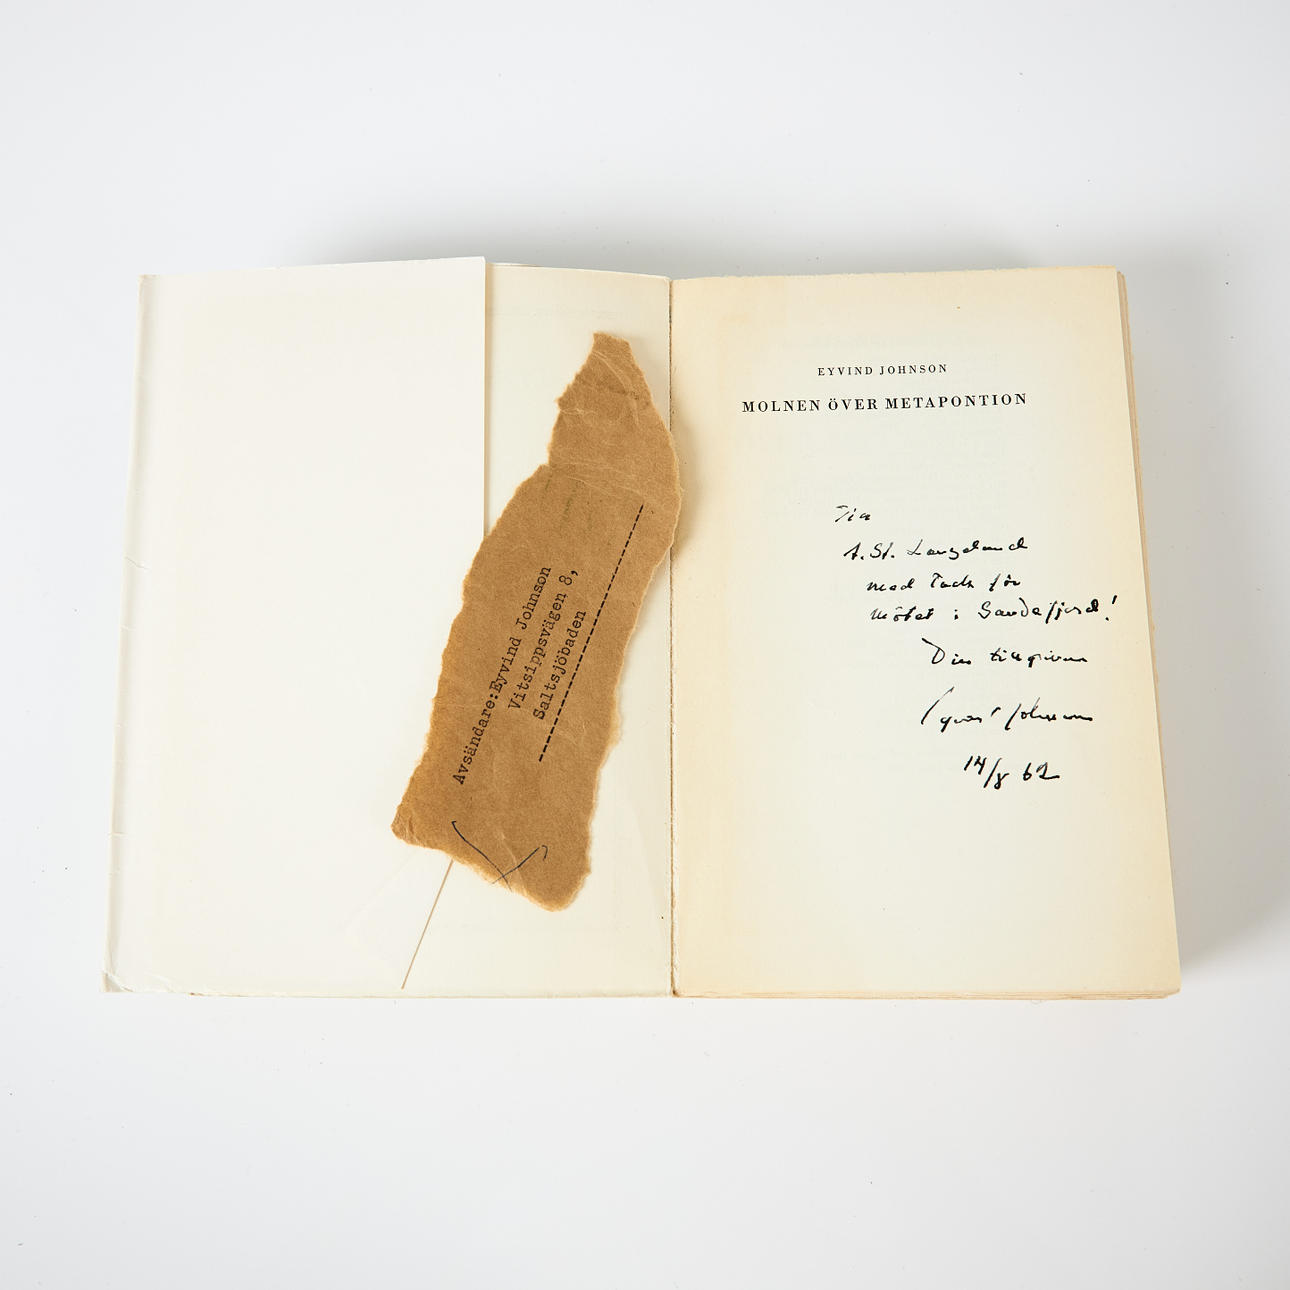 Avsändare:Eyvind Johnson
Vitsippsvägen 8,
Saltsjöbaden
EYVIND JOHNSON
MOLNEN ÖVER METAPONTION
Till
A. St. Langeland
med tack för
mötet i Sandefjord!
Din tillgivne
Eyvind Johnson
14/8 62